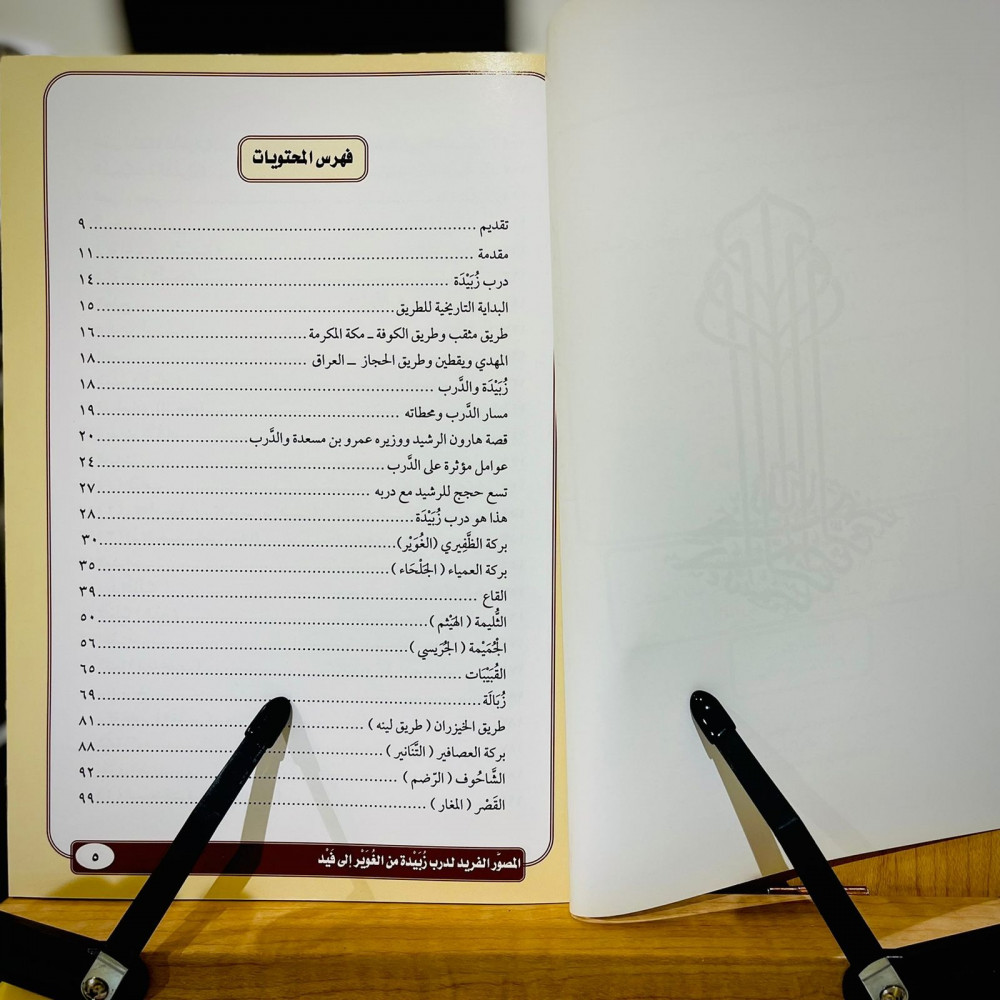 فهرس المحتويات
تقديم ........ ٩
مقدمة ........ ١١
درب زُبَيْدَة ........ ١٤
البداية التاريخية للطريق ........ ١٥
طريق مثقب وطريق الكوفة ـ مكة المكرمة ........ ١٦
المهدي ويقطين وطريق الحجاز ـ العراق ........ ١٨
زُبَيْدَة والدَّرب ........ ١٨
مسار الدَّرب ومحطاته ........ ١٩
قصة هارون الرشيد ووزيره عمرو بن مسعدة والدَّرب ........ ٢٠
عوامل مؤثرة على الدَّرب ........ ٢٤
تسع حجج للرشيد مع دربه ........ ٢٧
هذا هو درب زُبَيْدَة ........ ٢٨
بركة الظَّفِيري (الغُوَيْر) ........ ٣٠
بركة العمياء ( الجَلْحَاء ) ........ ٣٥
القاع ........ ٣٩
الثُّليمة ( الهَيْثم ) ........ ٥٠
الْجُمَيْمة ( الجُرَيسي ) ........ ٥٦
القُبَيْبَات ........ ٦٥
زُبَالَة ........ ٦٩
طريق الخيزران ( طريق لينه ) ........ ٨١
بركة العصافير ( التَّنَانير ) ........ ٨٨
الشَّاحُوف ( الرّضم ) ........ ٩٢
القَصْر ( المغار ) ........ ٩٩
المصوّر الفريد لدرب زُبَيْدة من الغُوَيْر إلى فَيْد
٥